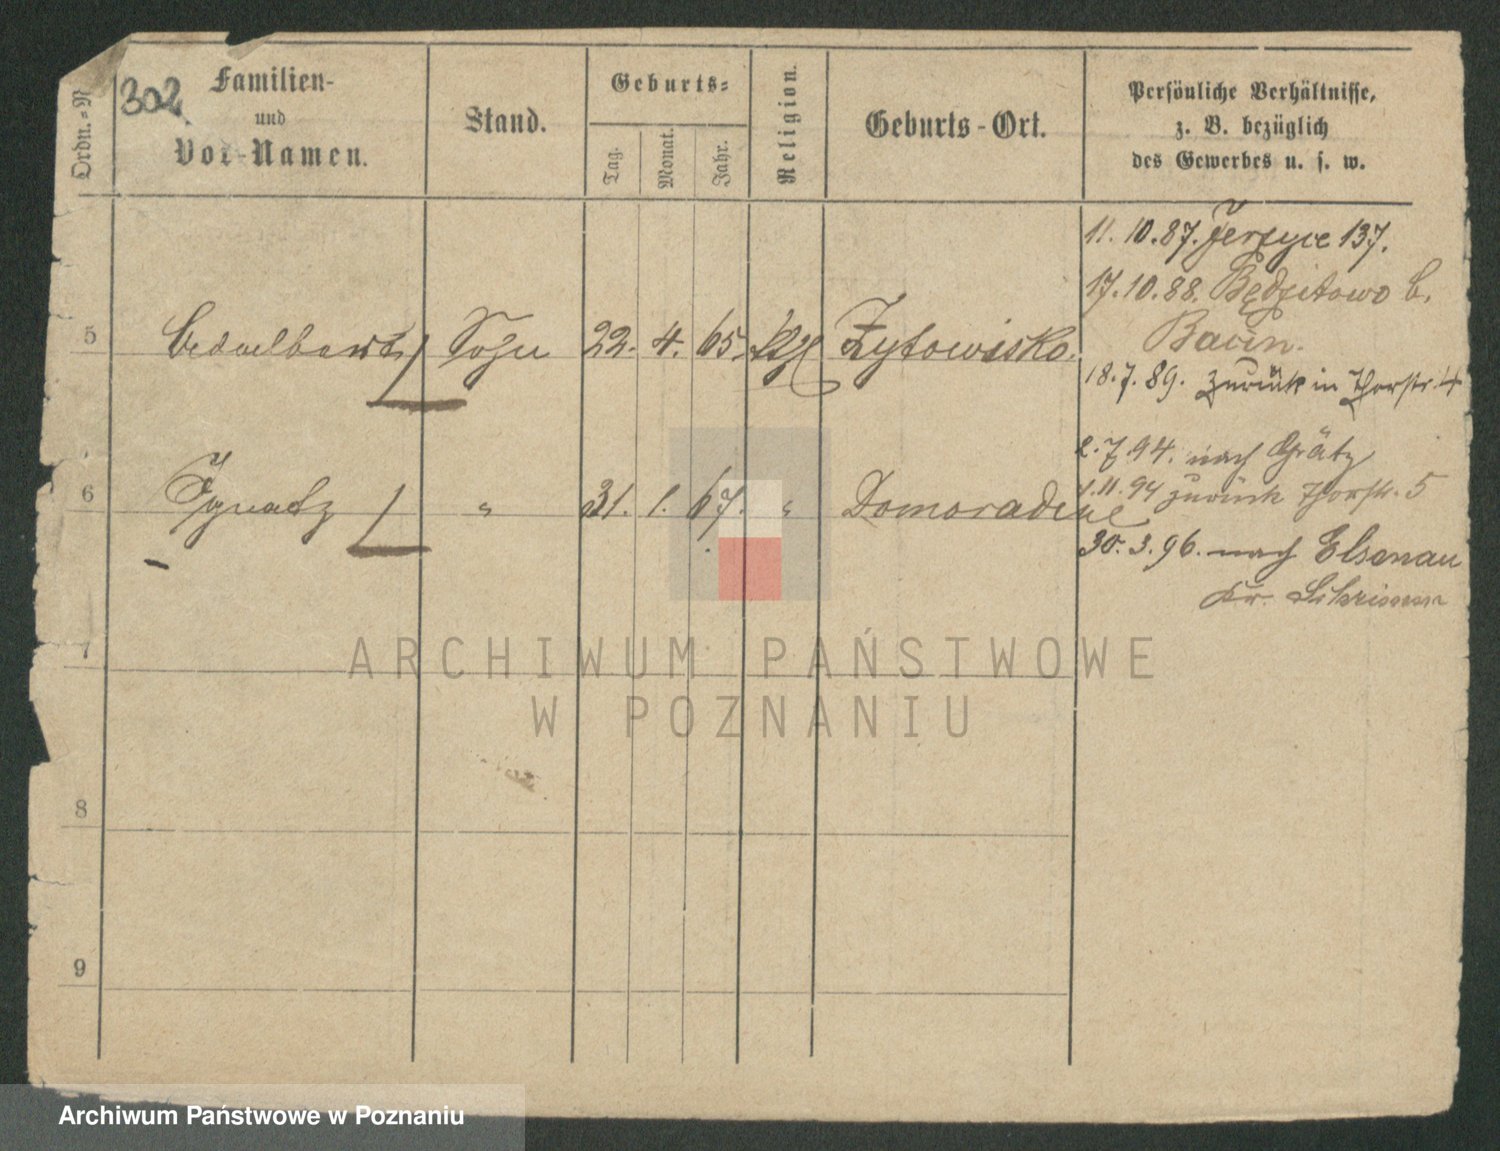 302
Ordn.=N
Familien-
und
Vor-Namen.
Stand.
Geburts=
Tag.
Monat.
Jahr.
Religion.
Geburts-Ort.
Persönliche Verhältnisse,
z. B. bezüglich
des Gewerbes u. s. w.
11. 10. 87. Jersyce 137.
17. 10. 88. Będzitowo b.
Bacin.
5 Adalbert Sohn 22. 4. 65. Zytowisko.
18. 7. 89. zurück in Thorstr. 4
2. 7. 94. nach Grätz
6 Ignatz " 31. 1. 67. "
11. 94 zurück Thorstr. 5
30. 3. 96. nach Elsenau
Kr.
7
8
9
ARCHIWUM PAŃSTWOWE
W POZNANIU
Archiwum Państwowe w Poznaniu